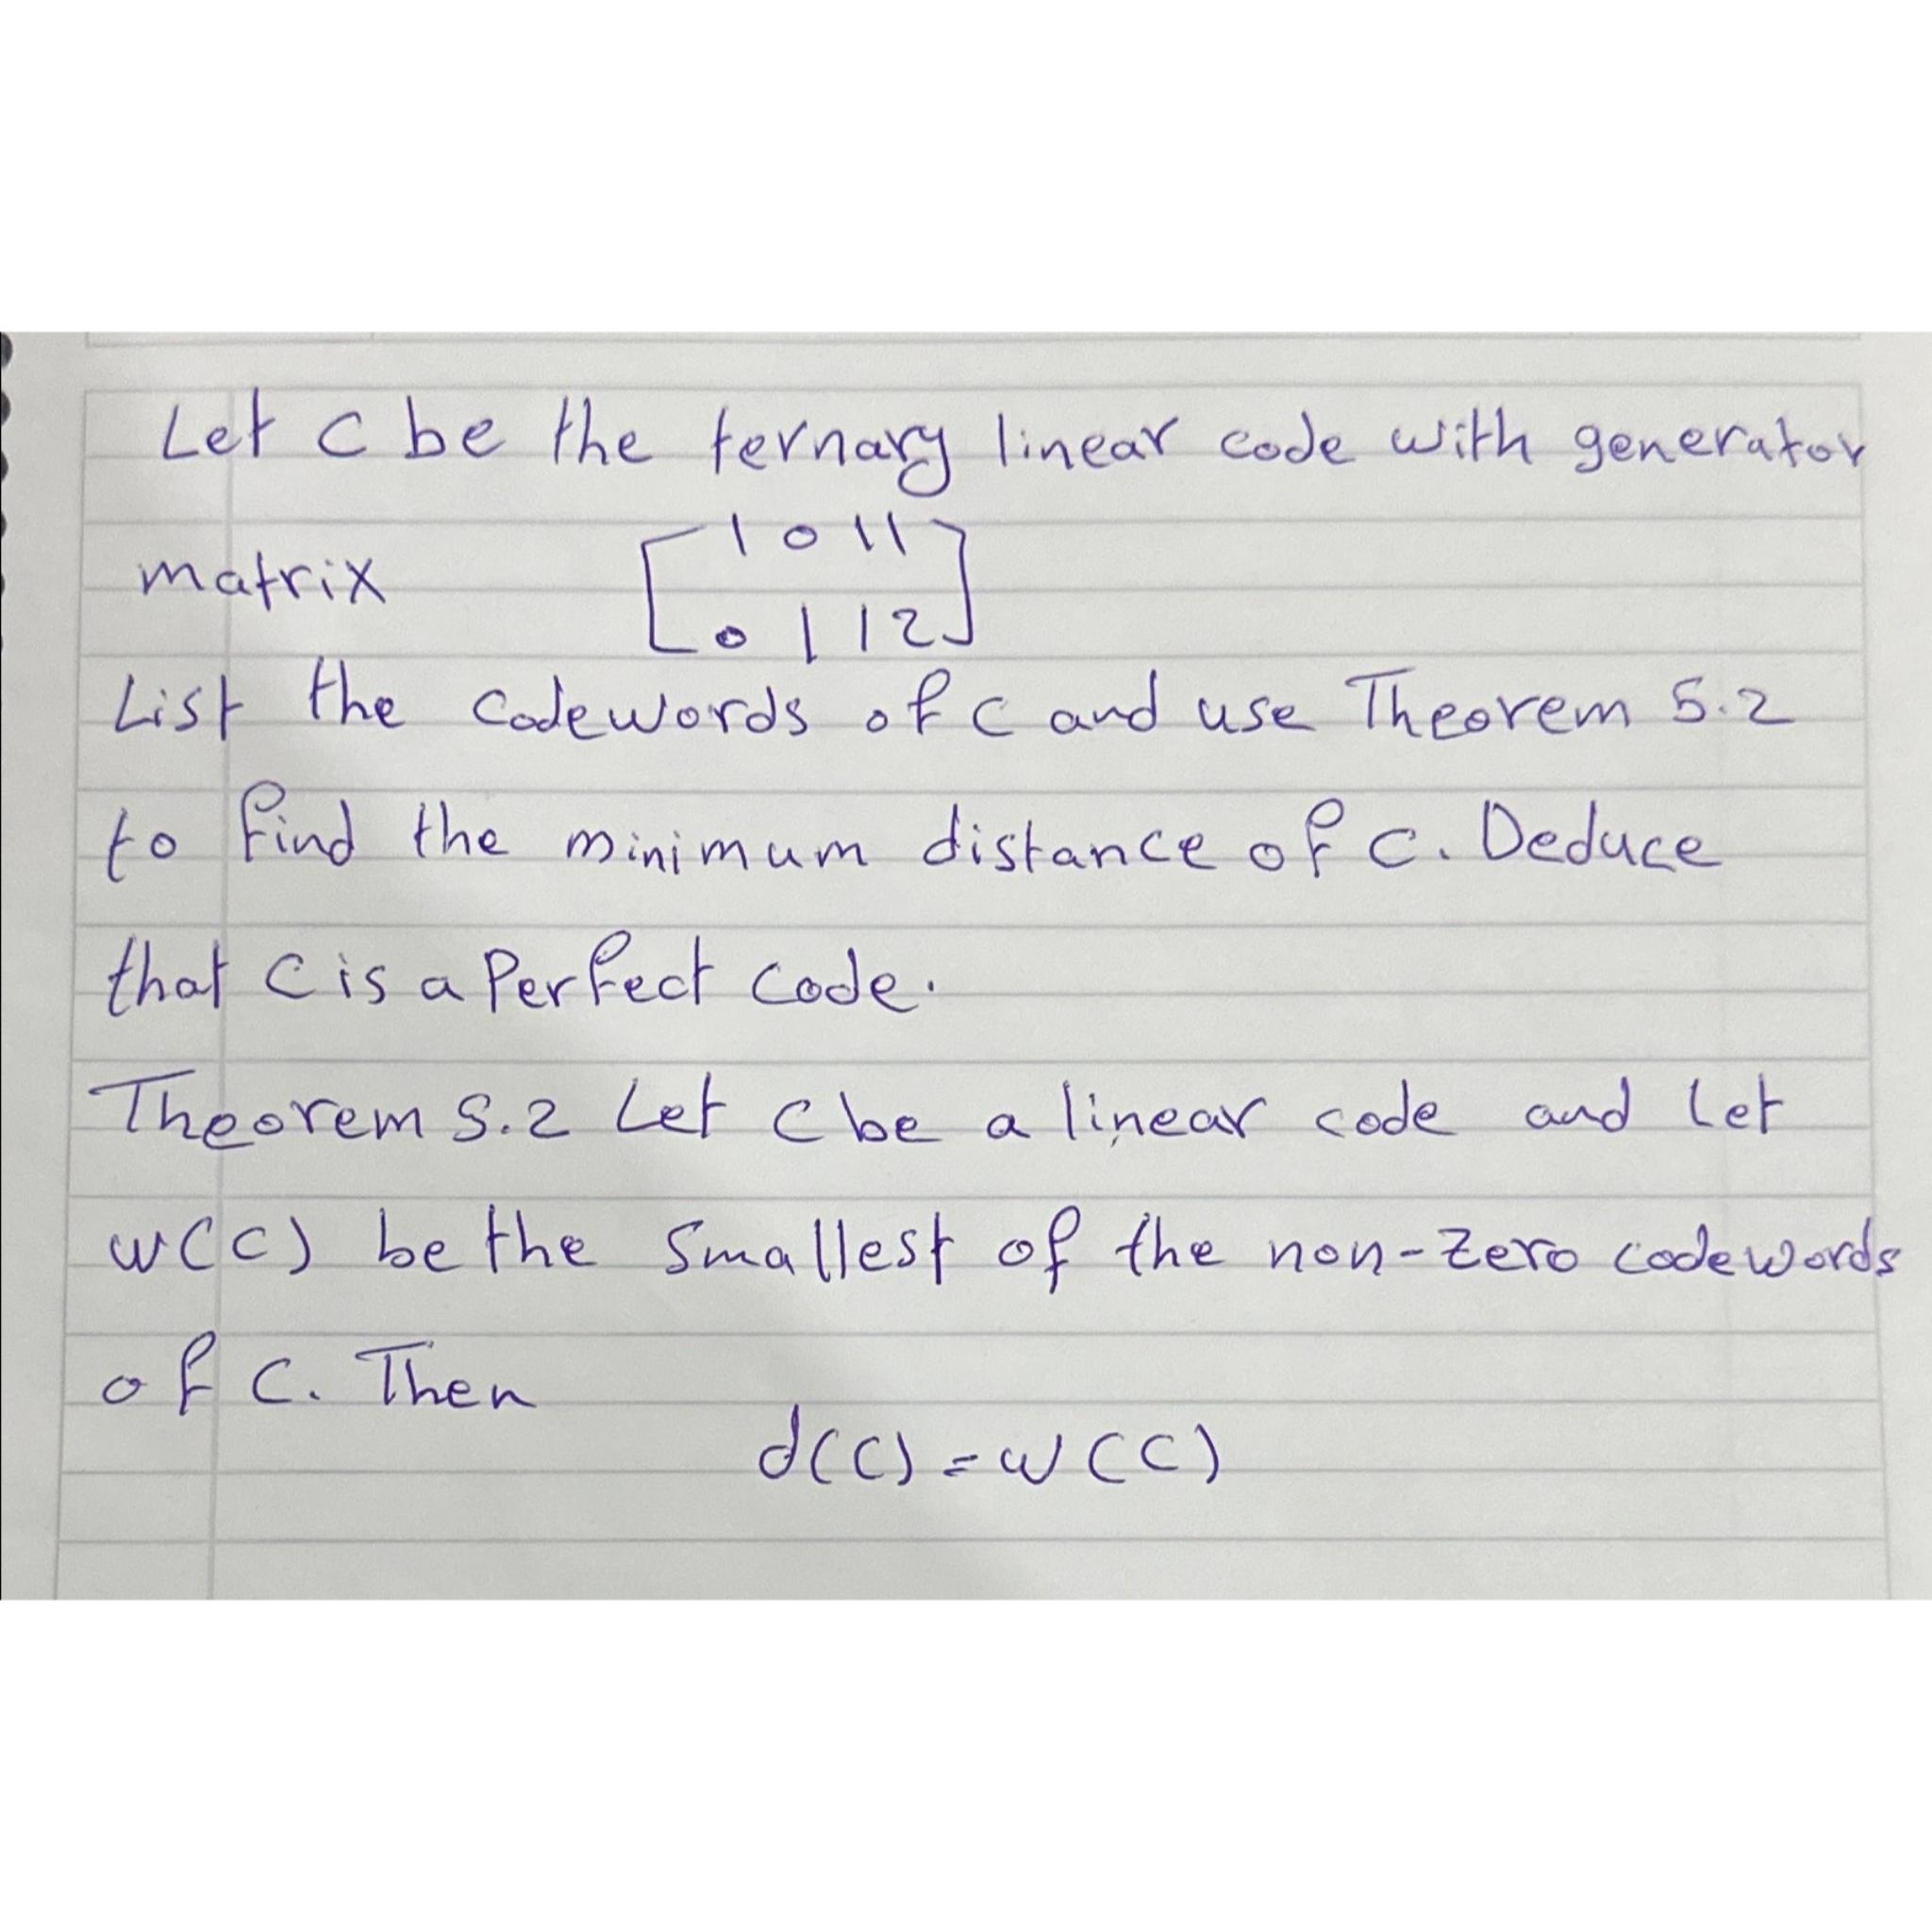 Let C be the ternary linear code with generator
matrix [1 0 1 1
0 1 1 2]
List the codewords of C and use Theorem 5.2
to find the minimum distance of C. Deduce
that C is a Perfect code.
Theorem 5.2 Let C be a linear code and let
w(C) be the smallest of the non-zero codewords
of C. Then
d(C) = w(C)